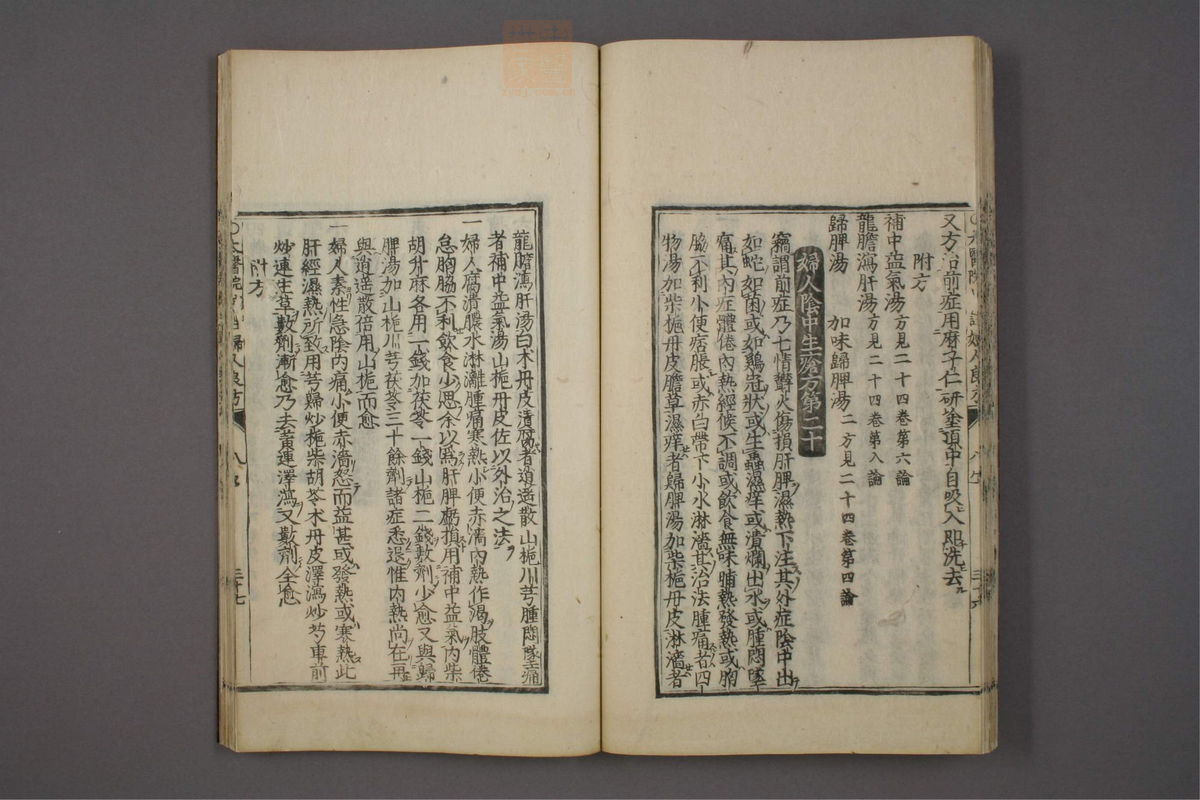 又方治前症用麻子仁研塗頂中自吸入即洗去
附方
補中益氣湯方見二十四卷第六論
龍膽瀉肝湯方見二十四卷第八論
歸脾湯　加味歸脾湯二方見二十四卷第四論
婦人陰中生瘡方第二十
竊謂前症乃七情欝火傷損肝脾濕熱下注其外症陰中出
如蛇如菌或如鷄冠狀或生蟲濕痒或潰爛出水或腫悶墜
痛其内症體倦内熱經候不調或飲食無味晡熱發熱或胸
脇不利小便痞脹或赤白帶下小水淋濇其治法腫痛者四
物湯加柴梔丹皮膽草濕痒者歸脾湯加柴梔丹皮淋濇者
龍膽瀉肝湯白朮丹皮潰腐者逍遥散山梔川芎腫悶墜痛
者補中益氣湯山梔丹皮佐以外治之法
一婦人腐潰膿水淋漓腫痛寒熱小便赤濇内熱作渴肢體倦
怠胸脇不利飲食少思余以爲肝脾虧損用補中益氣内柴
胡升麻各用一錢加茯苓一錢山梔二錢數劑少愈又與歸
脾湯加山梔川芎茯苓三十餘劑諸症悉退惟内熱尚在再
與逍遥散倍用山梔而愈
一婦人素性急陰内痛小便赤濇怒而益甚或發熱或寒熱此
肝經濕熱所致用芎歸炒梔柴胡苓朮丹皮澤瀉炒芍車前
炒連生草數劑漸愈乃去黄連澤瀉又數劑全愈
附方
三十七